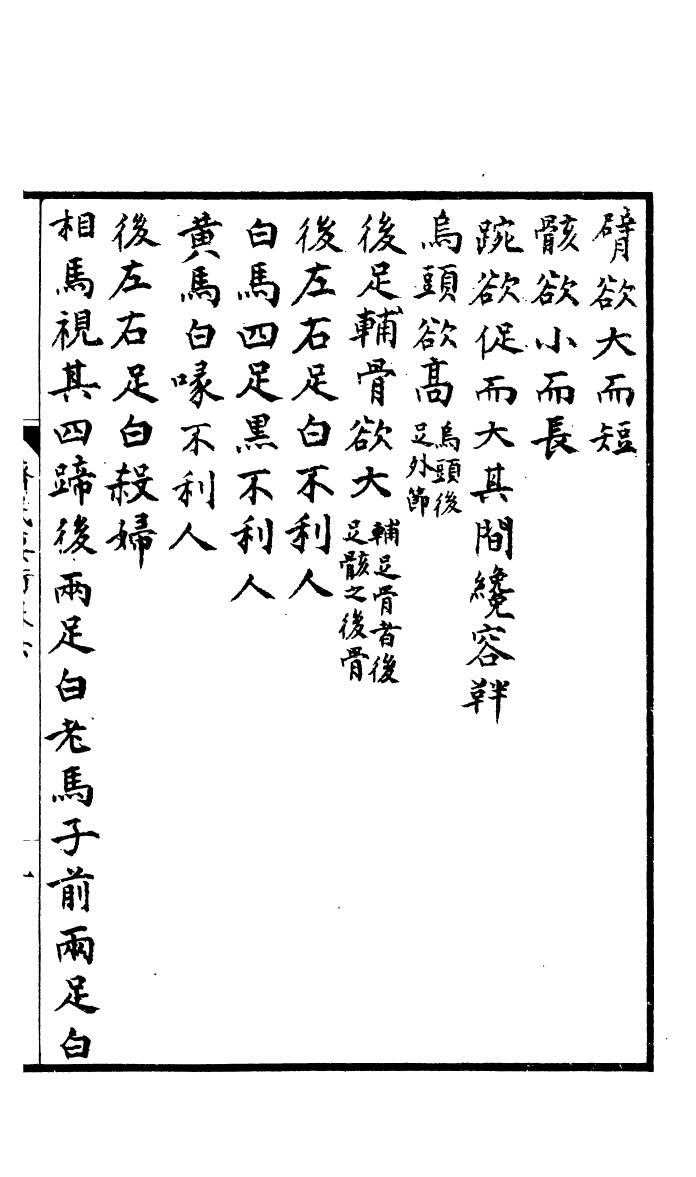 臂欲大而短
骸欲小而長
踠欲促而大其間纔容靽
烏頭欲髙烏頭後足外節
後足輔骨欲大輔足骨者後足骸之後骨
後左右足白不利人
白馬四足黒不利人
黄馬白喙不利人
後左右足白殺婦
相馬視其四蹄後兩足白老馬子前兩足白